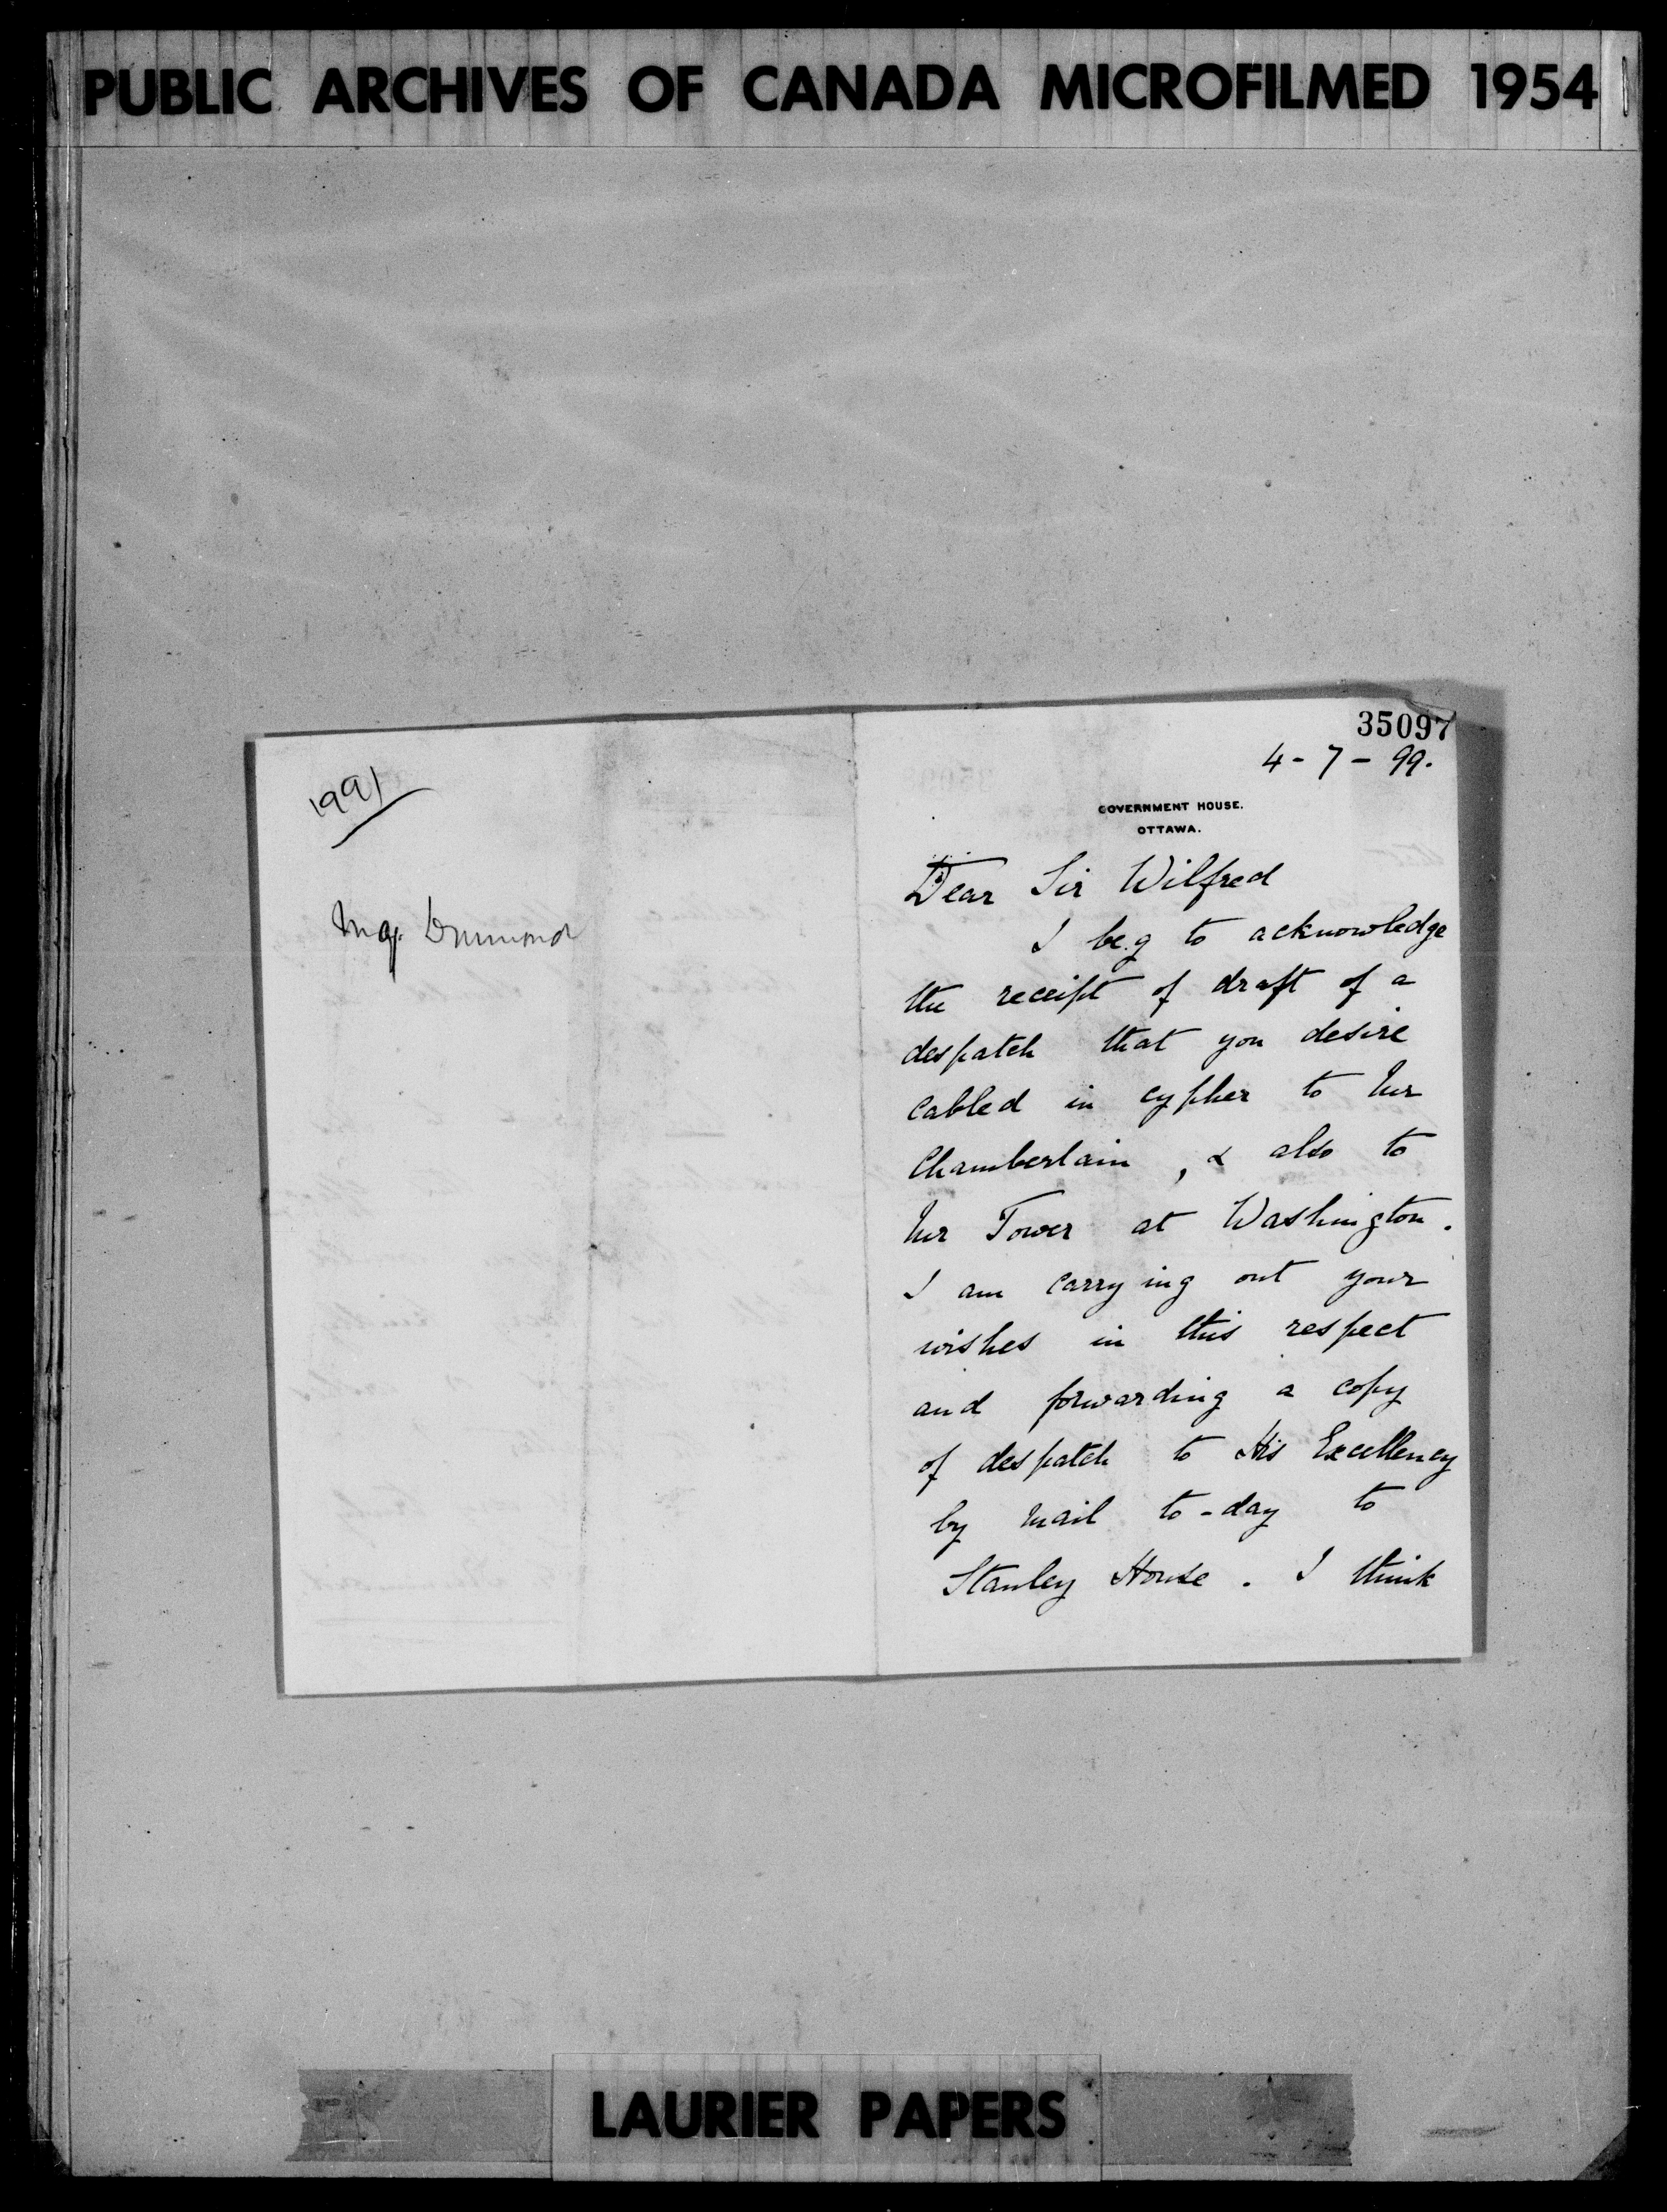 PUBLIC ARCHIVES OF CANADA MICROFILMED 1954
1991
Maj. Drummond
35097
4-7-99.
GOVERNMENT HOUSE.
OTTAWA.
Dear Sir Wilfred
I beg to acknowledge
the receipt of draft of a
despatch that you desire
cabled in cypher to Mr
Chamberlain, & also to
Mr Tower at Washington.
I am carrying out your
wishes in this respect
and forwarding a copy
of despatch to His Excellency
by mail to-day to
Stanley House. I think
LAURIER PAPERS